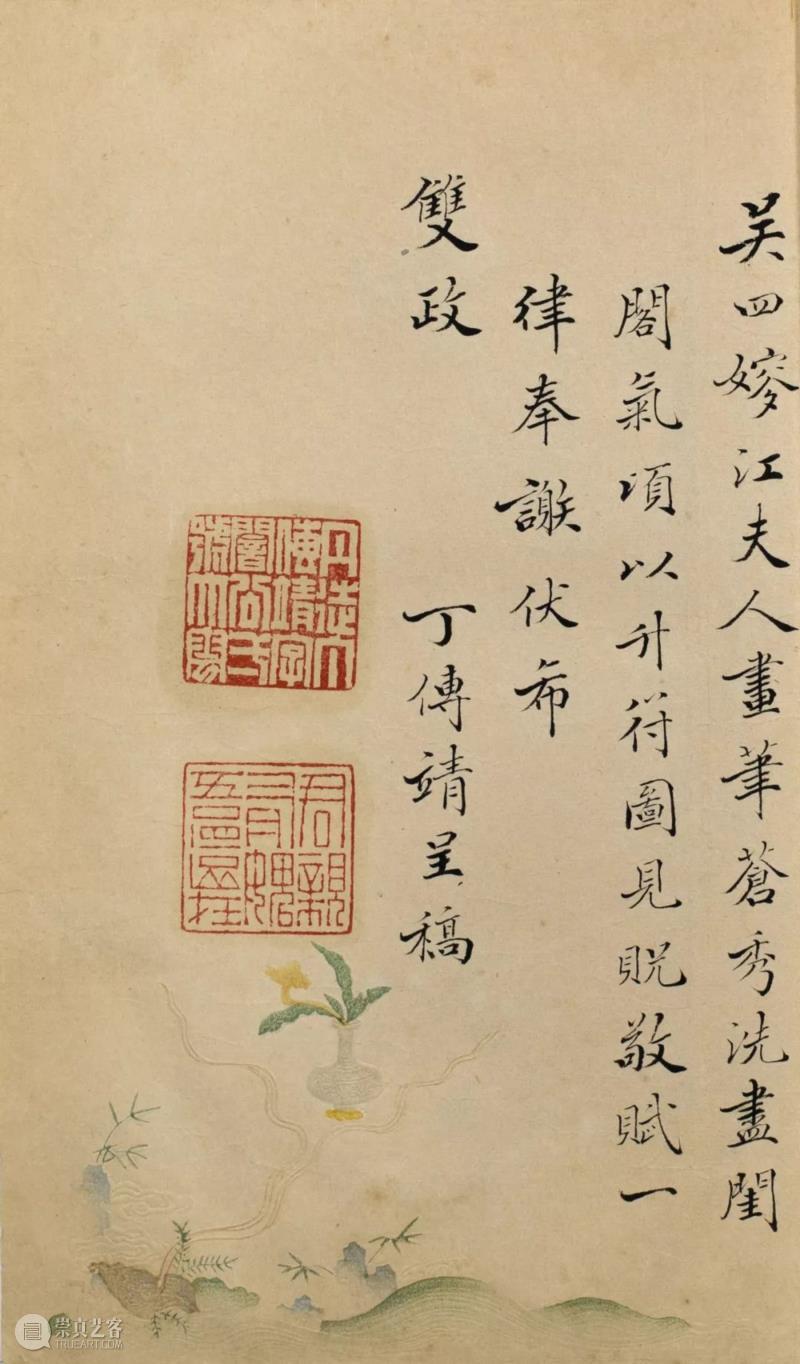 吳四嫂江夫人畫筆蒼秀洗盡閨
閣氣項以升符圖見貺敬賦一
律奉謝伏希
雙政
丁傳靖呈稿
崇真艺客
TRUEART.COM